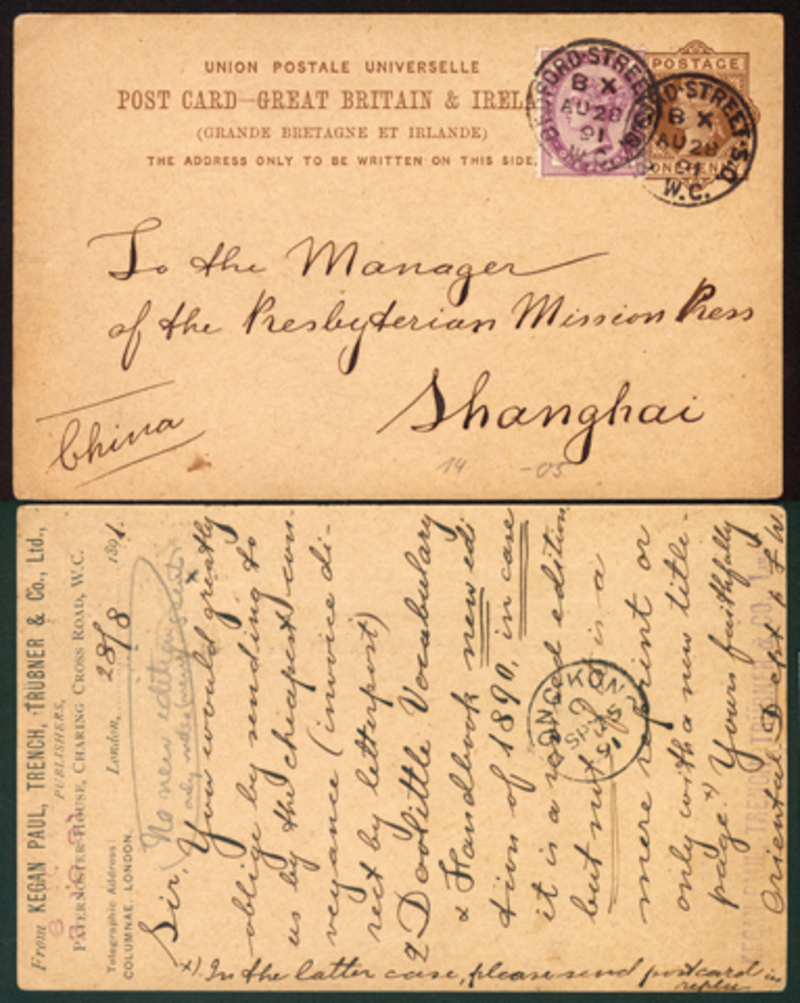 UNION POSTALE UNIVERSELLE
POST CARD—GREAT BRITAIN & IREL
(GRANDE BRETAGNE ET IRLANDE)
THE ADDRESS ONLY TO BE WRITTEN ON THIS SIDE.
POSTAGE
BEDFORD·STREET·S.O.
B X
AU 28
91
W.C.
BEDFORD·STREET·S.O.
B X
AU 28
91
W.C.
To the Manager
of the Presbyterian Mission Press
Shanghai
China
14 -05
From KEGAN PAUL, TRENCH, TRÜBNER & Co., Ltd.,
PUBLISHERS,
PATERNOSTER HOUSE, CHARING CROSS ROAD, W.C.
Telegraphic Address:
COLUMNAE, LONDON.
London, 28/8 1891.
No new edition
Sir,
You would greatly
oblige by sending to
us by the cheapest con-
veyance (invoice di-
rect by letterpost)
2 Doolittle Vocabulary
& Handbook new edi
tion of 1890, in case
it is a edition
but not if is a
mere reprint or
only with a new title-
page. x) Yours faithfully
Oriental Dept
x) In the latter case, please send postcard in
replie